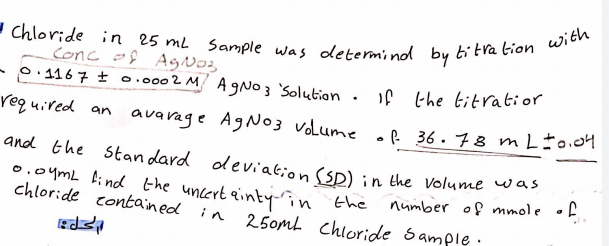 Chloride in 25 mL Sample was determind by titration with
Conc of AgNO3
0.1167 ± 0.0002 M AgNO3 Solution. If the titratior
required an avarage AgNO3 volume of 36.78 mL ±0.04
and the standard deviation (SD) in the volume was
0.04mL find the uncertainty in the number of mmole of
chloride contained in 250mL Chloride Sample.
الحل: